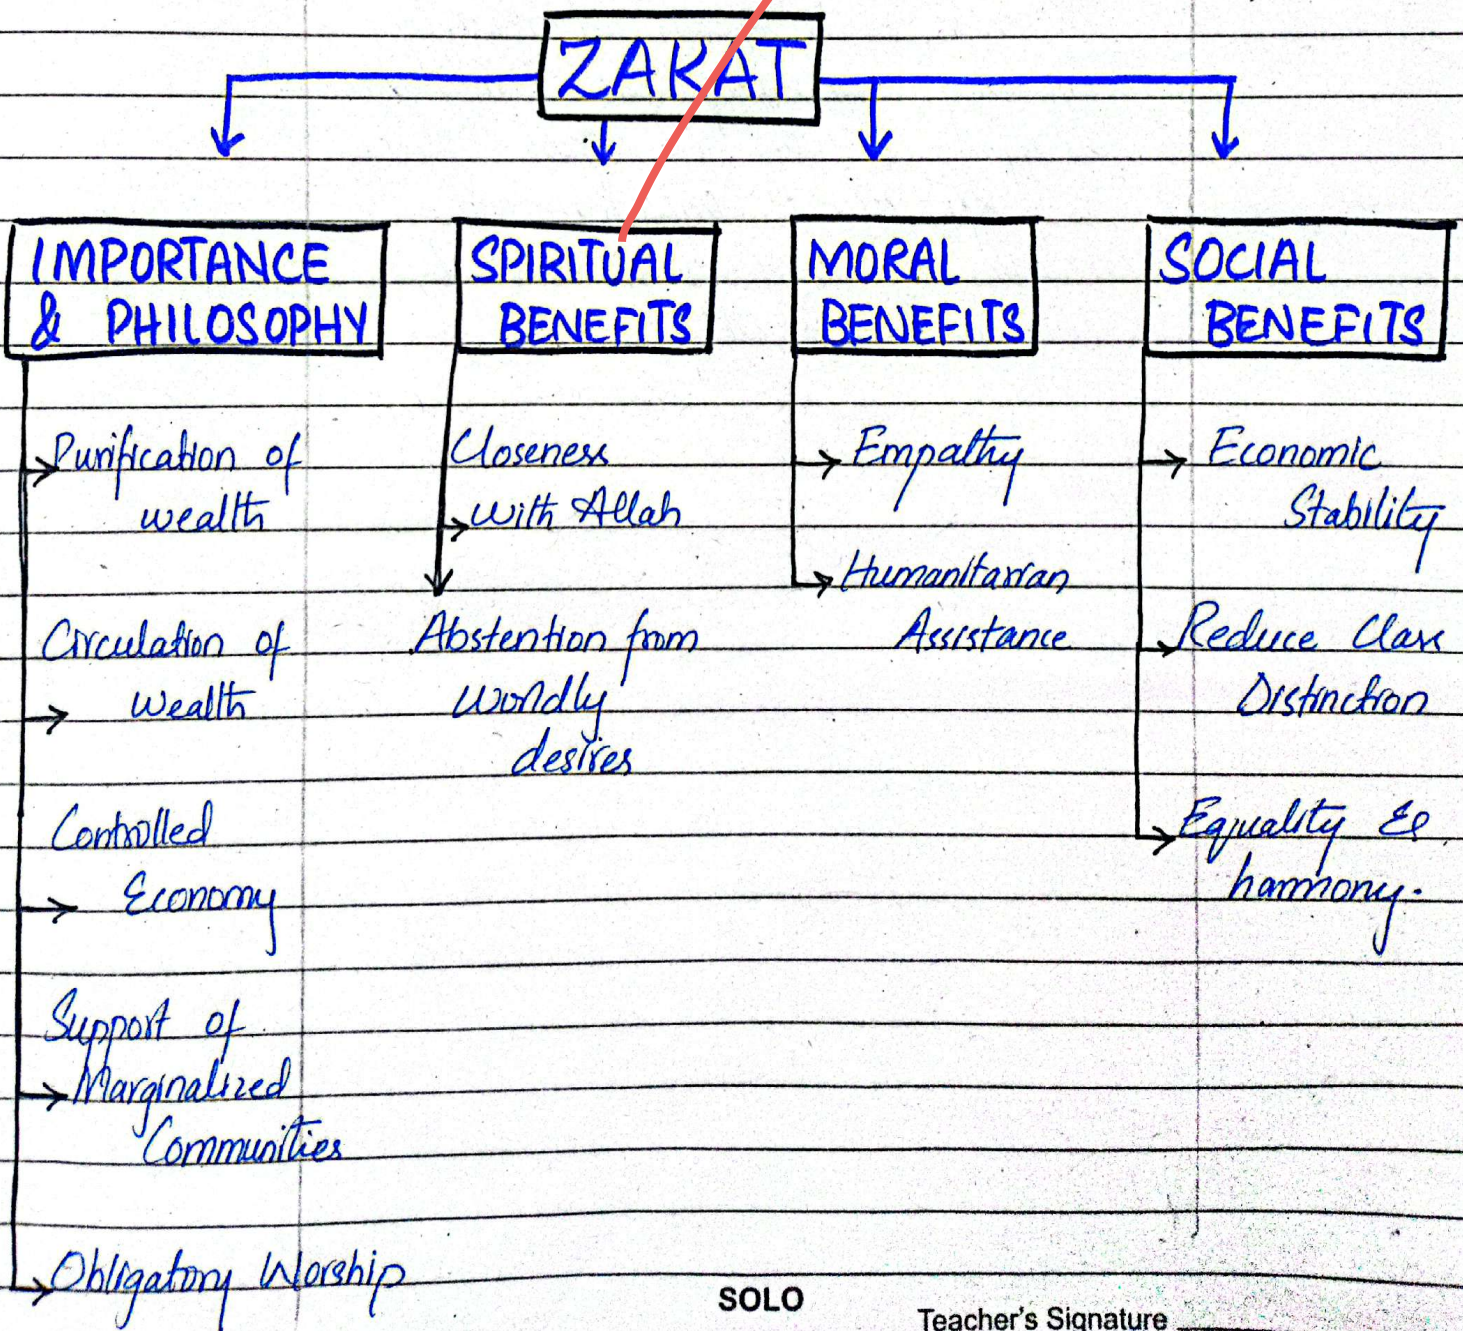 ZAKAT
IMPORTANCE
& PHILOSOPHY
Purification of
wealth
Circulation of
wealth
Controlled
Economy
Support of
Marginalized
Communities
Obligatory Worship
SPIRITUAL
BENEFITS
Closeness
with Allah
Abstention from
worldly
desires
MORAL
BENEFITS
Empathy
Humanitarian
Assistance
SOCIAL
BENEFITS
Economic
Stability
Reduce Class
Distinction
Equality &
harmony.
SOLO
Teacher's Signature